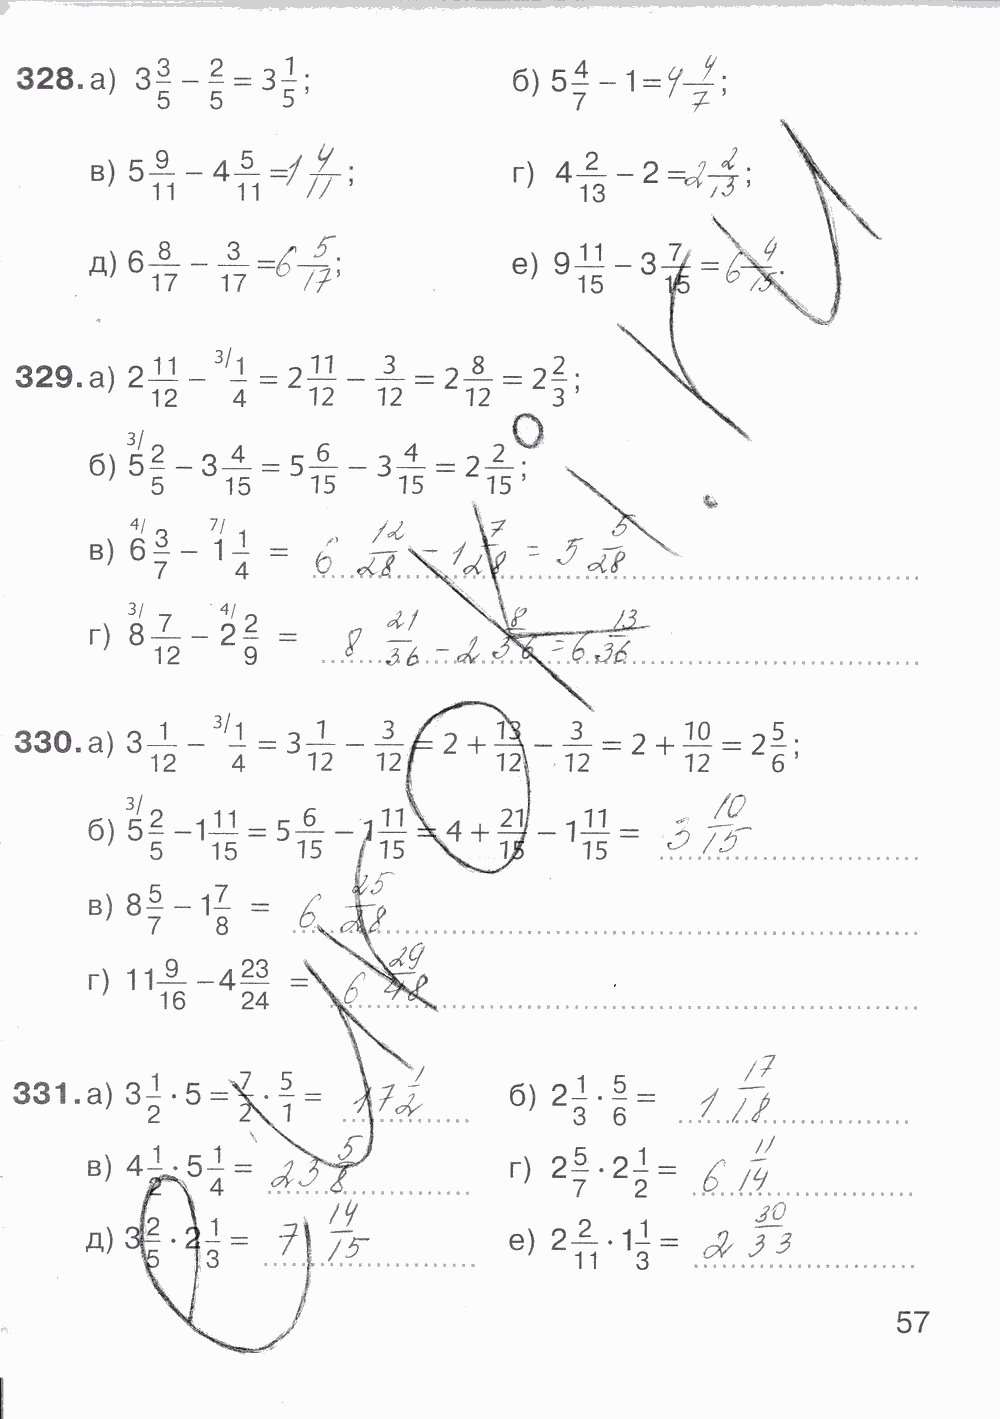 328. а) 3 3/5 − 2/5 = 3 1/5; б) 5 4/7 − 1 = 4 4/7;
в) 5 9/11 − 4 5/11 = 1 4/11; г) 4 2/13 − 2 = 2 2/13;
д) 6 8/17 − 3/17 = 6 5/17; е) 9 11/15 − 3 7/15 = 6 4/15.
329. а) 2 11/12 − 3/ 1/4 = 2 11/12 − 3/12 = 2 8/12 = 2 2/3;
б) 3/ 5 2/5 − 3 4/15 = 5 6/15 − 3 4/15 = 2 2/15;
в) 4/ 6 3/7 − 7/ 1 1/4 = 6 12/28 − 1 7/28 = 5 5/28
г) 3/ 8 7/12 − 4/ 2 2/9 = 8 21/36 − 2 8/36 = 6 13/36
330. а) 3 1/12 − 3/ 1/4 = 3 1/12 − 3/12 = 2 + 13/12 − 3/12 = 2 + 10/12 = 2 5/6;
б) 3/ 5 2/5 − 1 11/15 = 5 6/15 − 1 11/15 = 4 + 21/15 − 1 11/15 = 3 10/15
в) 8 5/7 − 1 7/8 = 6 25/28
г) 11 9/16 − 4 23/24 = 6 29/48
331. а) 3 1/2 · 5 = 7/2 · 5/1 = 17 1/2 б) 2 1/3 · 5/6 = 1 17/18
в) 4 1/2 · 5 1/4 = 23 5/8 г) 2 5/7 · 2 1/2 = 6 11/14
д) 3 2/5 · 2 1/3 = 7 14/15 е) 2 2/11 · 1 1/3 = 2 30/33
57